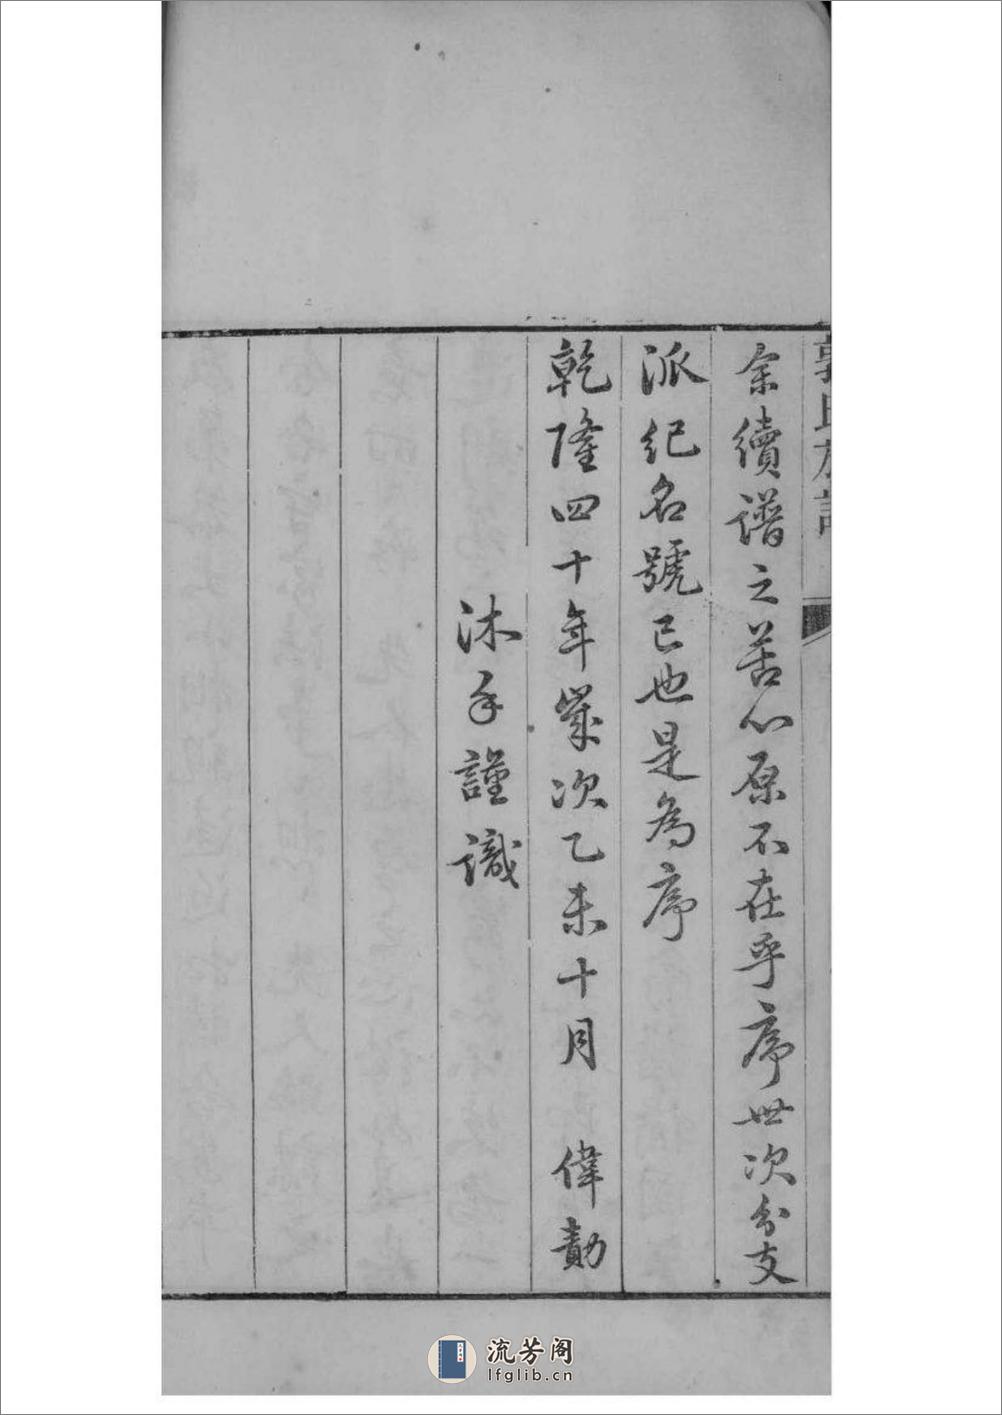 郭氏族譜
余續譜之苦心原不在乎序世次分支
派紀名號已也是為序
乾隆四十年歲次乙未十月 偉勣
沐手謹識
流芳阁
lfglib.cn